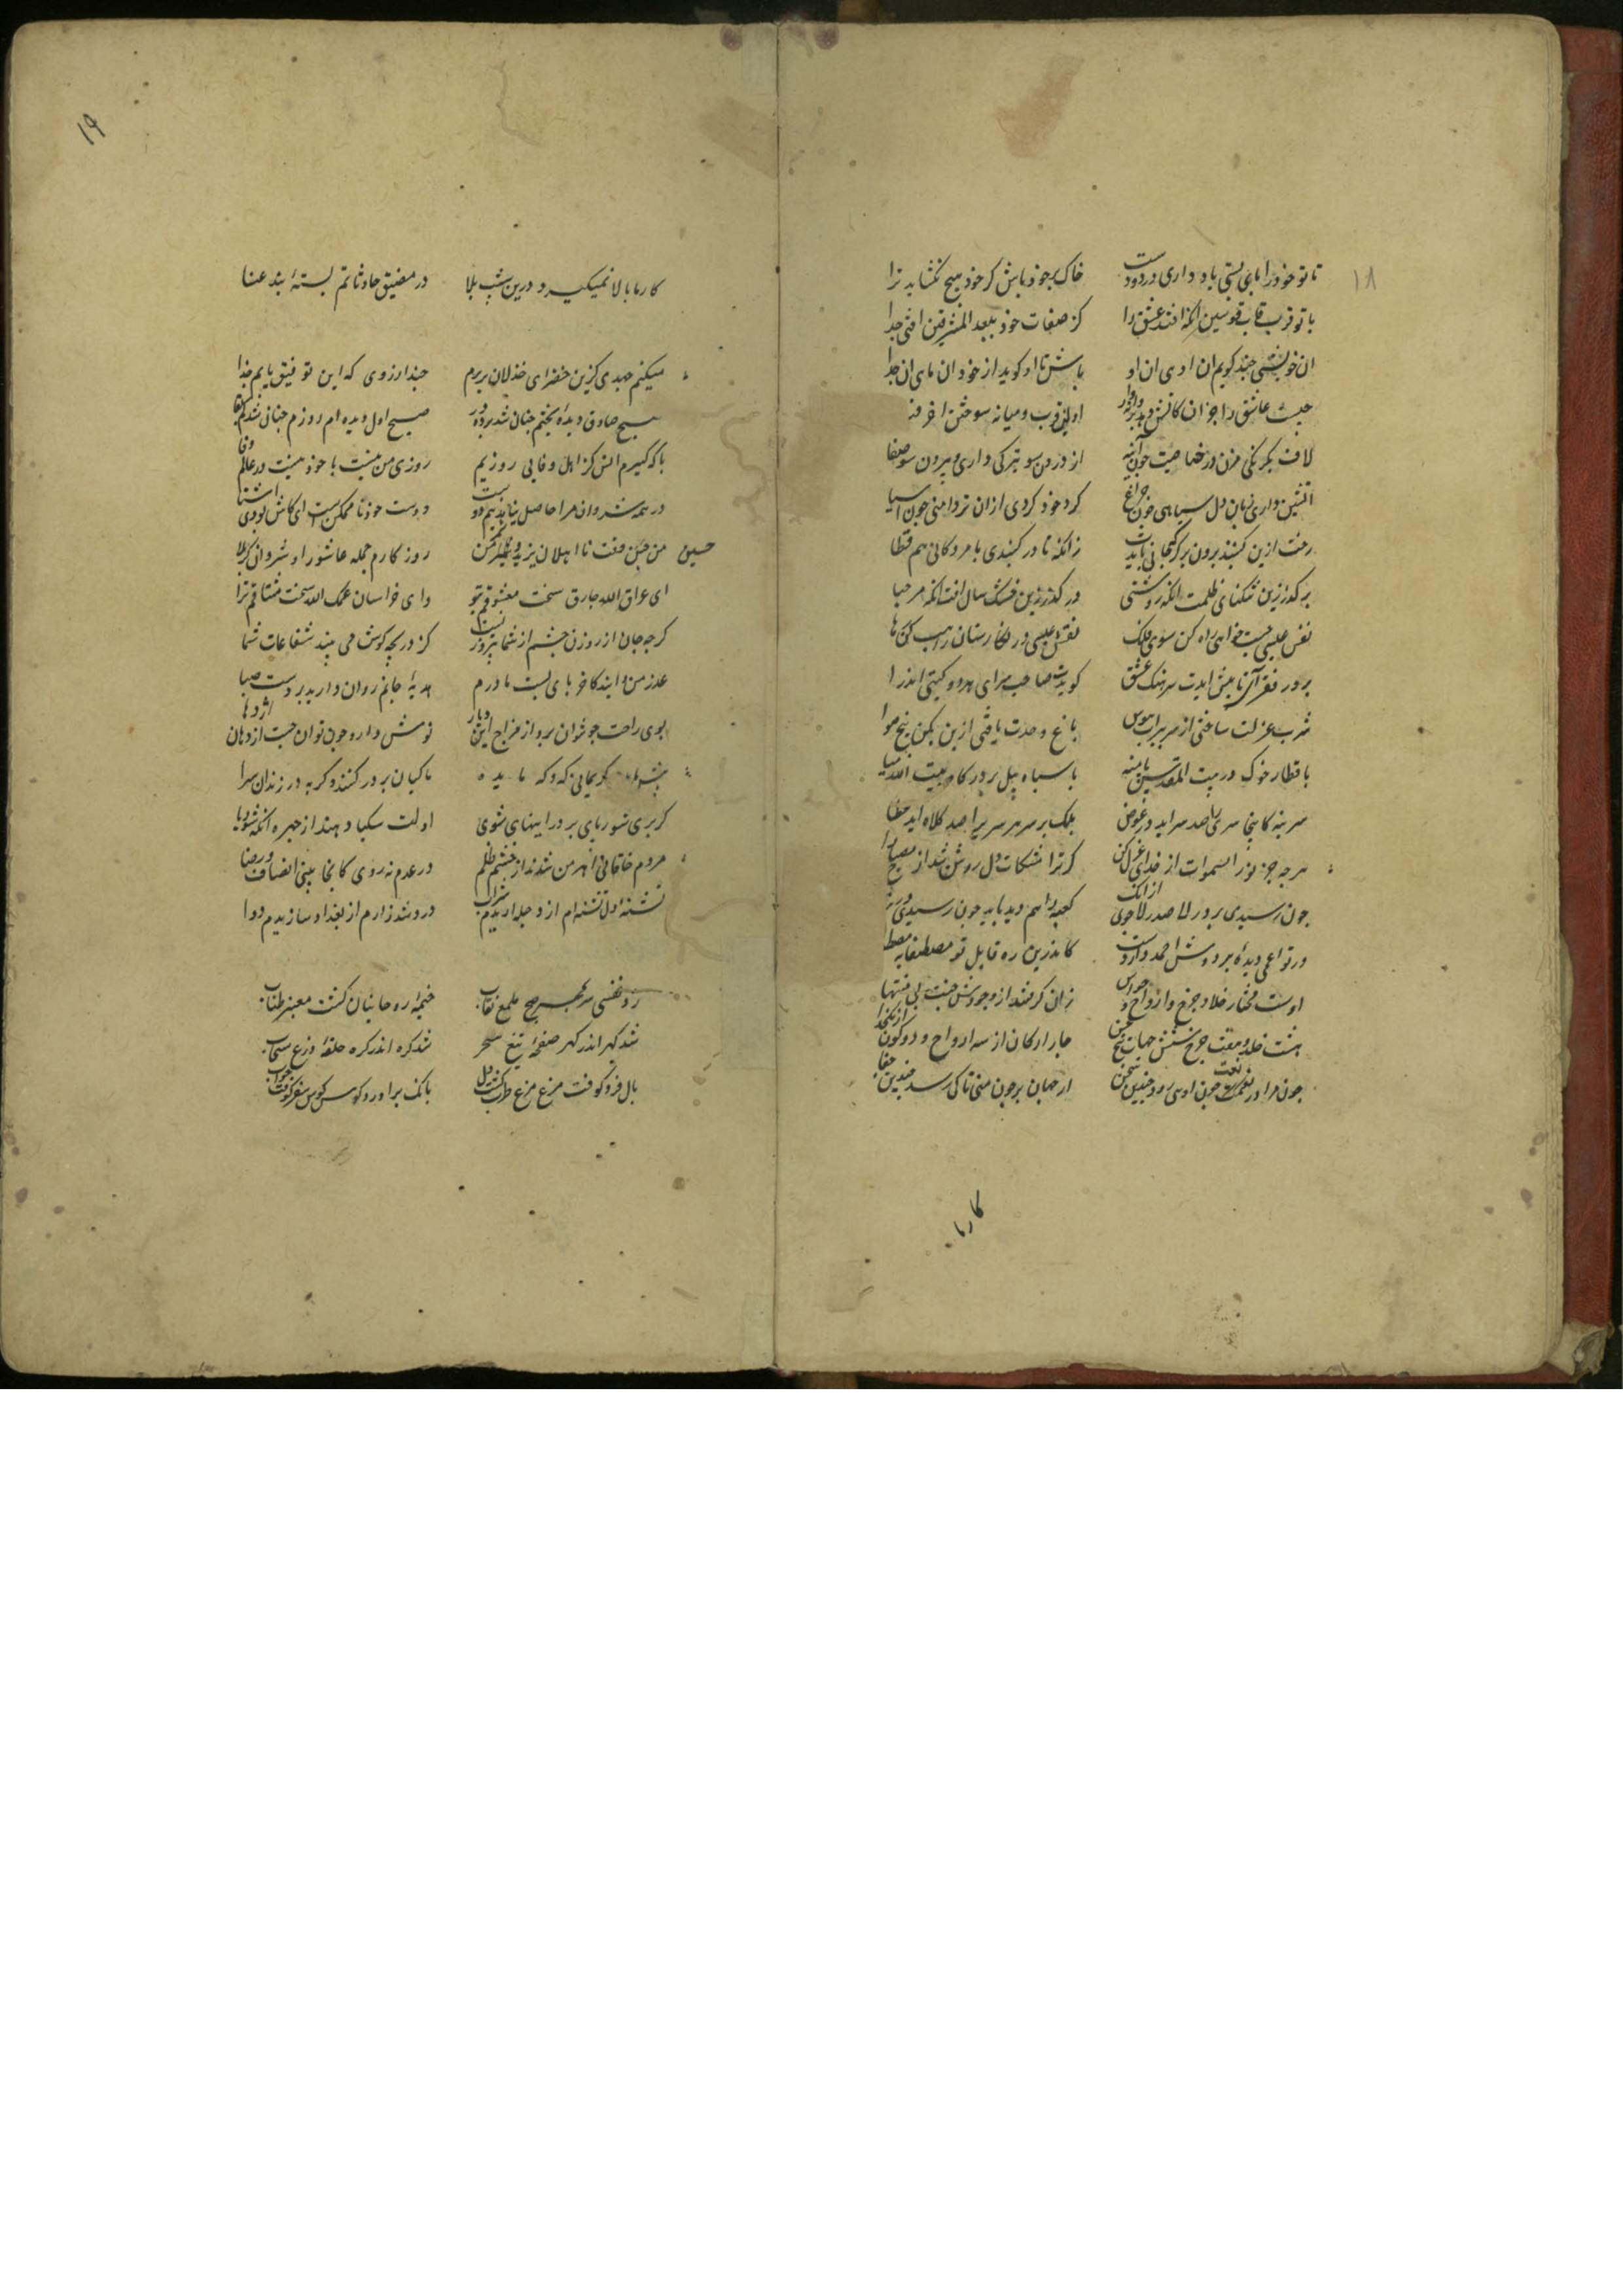 ۱۸
تا تو خود را پای بستی باد داری در دو دست خاک بر خود پاش کز خود هیچ نکشاید ترا
با تو قرب قاب قوسین آنکه افتد عشق را کز صفات خود ببعد المشرقین افتی جدا
آن خویشی چند کویی آن اویم آن او باش تا او کوید از خود آن مایی آن ما
چیست عاشق را جز آن کاتش دهد پروانه‌وار اولش قرب و میانه سوختن آخر فنا
لاف یکرنکی مزن در خاصیت چون آینه از درون سو تیرکی داری و بیرون سو صفا
آتشین داری زبان دل سیاهی چون چراغ کرد خود کردی از آن تردامنی چون آسیا
رخت ازین کنبد برون بر کر حیاتی بایدت زانکه تا در کنبدی با مردکانی هم قطا
بر کذر زین تنکنای ظلمت اینک روشنی در کذر زین خشک سال آفت آنک مرحبا
نفس عیسی جست خواهی راه کن سوی فلک نقش عیسی در نکارستان راهب کن رها
بر در فقر آی تا پیش آیدت سرهنک عشق کوید ای صاحب سرای هر دو کیتی اندر آ
شرب عزلت ساختی از سر ببر آب هوس باغ وحدت یافتی از بن بکن بیخ هوا
با قطار خوک در بیت المقدس پا منه با سپاه پیل بر درکاه بیت الله میا
سر بنه کاینجا سری را صد سر آید در عوض بلکه بر سر هر سری را صد کلاه آید عطا
هر چه جز نور السموات از خدای عزل کن کر ترا مشکات دل روشن شد از مصباح لا
چون رسیدی بر در لا صدر الا جوی از آنک کعبه را هم دید باید چون رسیدی در منا
ور تو اعمی دیده‌ای بر دوش احمد دار دست کاندرین ره قاید تو مصطفا به مصطفا
اوست مختار خدا و چرخ و ارواح و حواس زان کرفتند از وجودش منت بی منتها
هشت خلد و هفت چرخ و شش جهات و پنج حس چار ارکان و سه ارواح و دو کون از یک خدا
چون مرا در نعت چون اویی رود چندین سخن از جهان بر چون منی تا کی رسد چندین جفا
کارما
۱۹
کار ما بالا نمیکیرد درین شیب بلا در مضیق حادثاتم بستهٔ بند عنا
میکنم جهدی کزین خضرای خذلان بر پرم حبذا روزی که این توفیق یابم حبذا
صبح صادق دیدهٔ بختم چنان شد پرده در صبح اول دیده‌ام روزم چنان شد کم بقا
با که کیرم انس کز اهل وفا بی روزیم روزی من نیست یا خود نیست در عالم وفا
در همه شروان مرا حاصل نیامد نیم دوست دوست خود ناممکنست ای کاش بودی آشنا
من حسین وقت نااهلان یزید و شمر من روزکارم جمله عاشورا و شروان کربلا
حسین
ای عراق الله جارک سخت مشعوفم بتو وای خراسان عمرک الله سخت مشتاقم ترا
کرچه جان از روزن چشم از شما بی روزیست از دریچه کوش می بیند شعاعات شما
عذر من دانید کاخر پای بست مادرم هدیهٔ جانم روان دارید بر دست صبا
بوی راحت چون توان برد از مزاج این دیار نوش دارو چون توان جست از دهان اژدها
پیش ما بینی کریمانی که کاه مایده ماکیان بر در کنند و کربه در زندان سرا
کر برای شوربایی بر در اینها شوی اولت سکبا دهند از چهره آنکه شوربا
مردم خاقانی اهرمن شدند از خشم و ظلم در عدم نه روی کانجا بینی انصاف و رضا
تشنه دل تشنه‌ام از دجله آریدم شراب دردمند زارم از بغداد سازیدم دوا
زد نفس سر بمهر صبح ملمع نقاب خیمهٔ روحانیان کشت معنبر طناب
شد کهر اندر کهر صفحهٔ تیغ سحر شد کره اندر کره حلقهٔ درع سحاب
بال فرو کوفت مرغ مرغ طرب کشت دل بانک برآورد کوس کوس سفر کوفت خواب